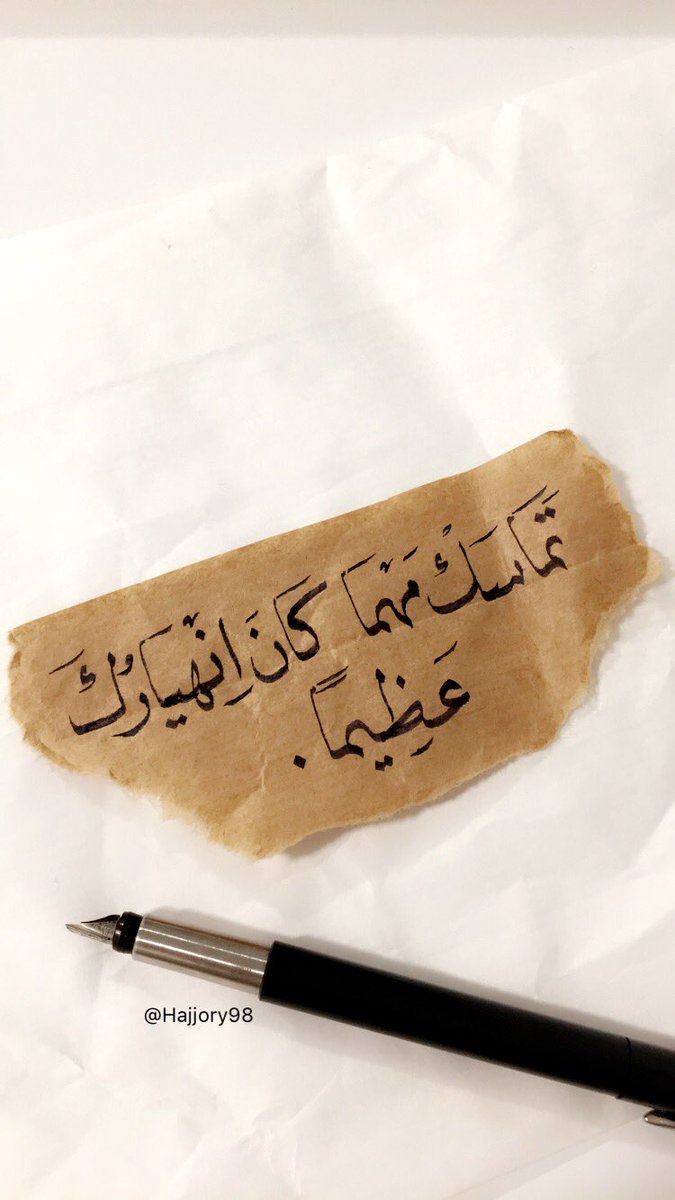 تَمَاسَكْ مَهْمَا كَانَ اِنْهيَارُكَ
عَظِيماً.
@Hajjory98